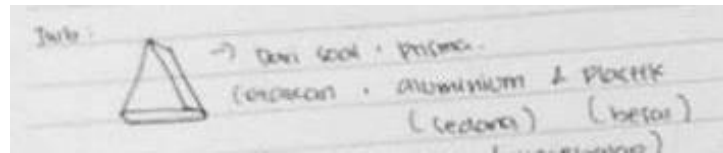 Jwb :
→ Dari soal : prisma.
Cetakan : aluminium & plastik
(sedang) (besar)